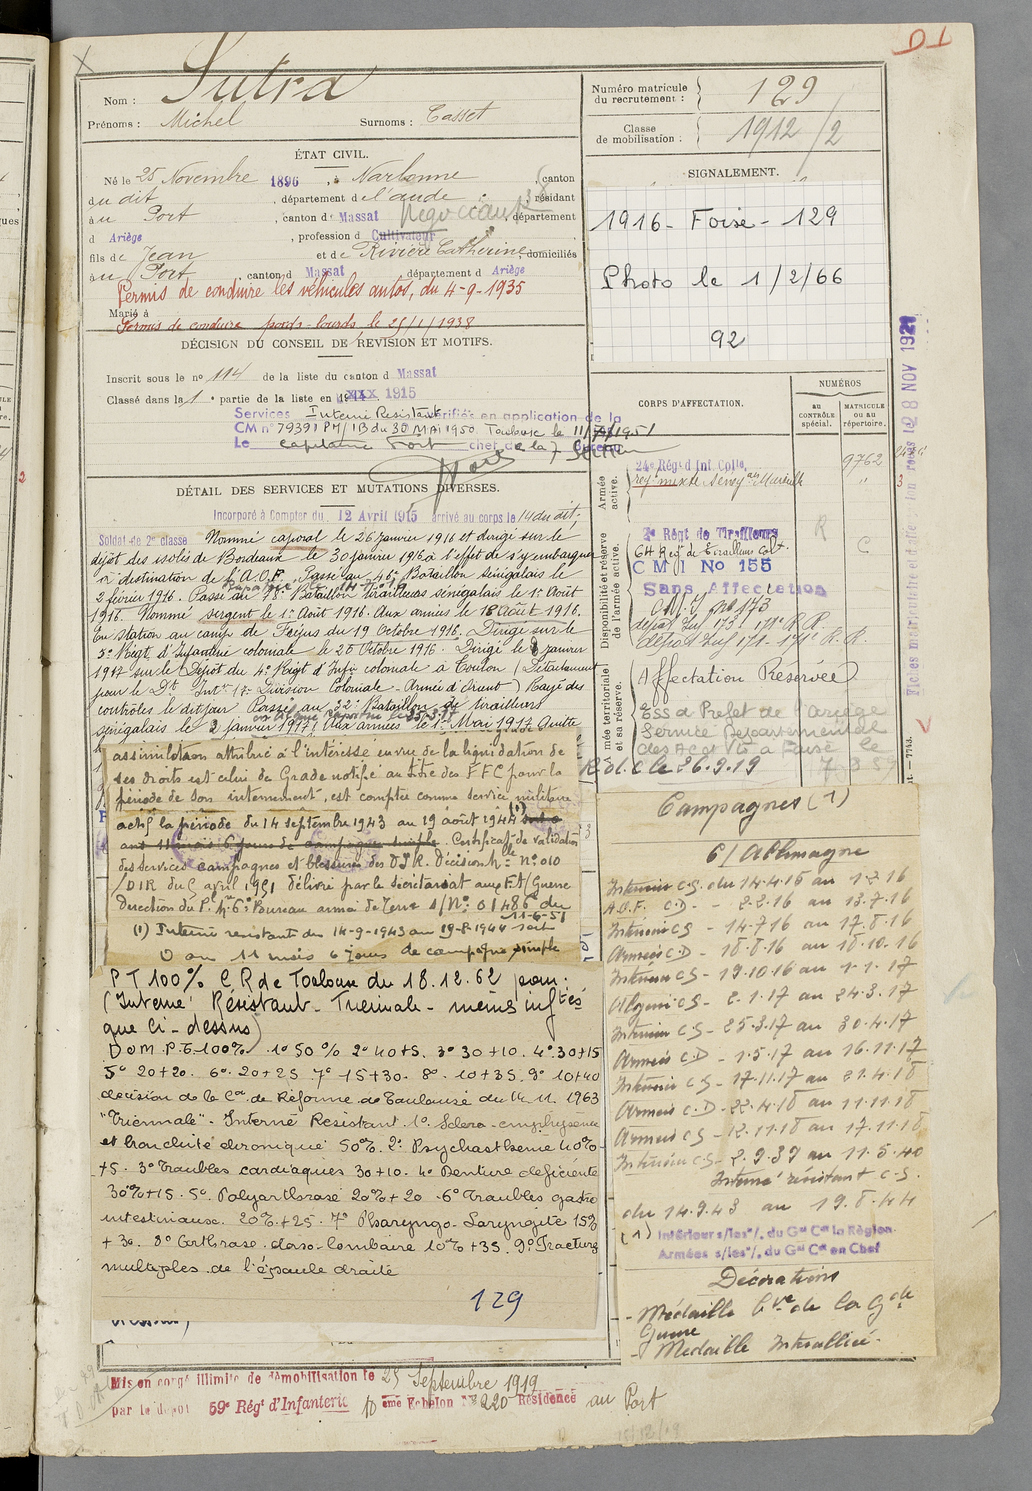 D 1
Nom : Sutra
Prénoms : Michel Surnoms : Casset
Numéro matricule
du recrutement : 129
Classe
de mobilisation : 1912/2
ÉTAT CIVIL.
Né le 25 Novembre 1896, à Narbonne, canton
du dit, département de l'aude, résidant
à u Port, canton d Massat Négociant, département
d Ariège, profession d Cultivateur
fils de Jean et de Rivière Catherine, domiciliés
à u Port, canton d Massat département d Ariège
Permis de conduire les véhicules autos, du 4-9-1935
Marié à
Permis de conduire poids-lourds, le 25/1/1938
SIGNALEMENT.
1916 - Foix - 129
Photo le 1/2/66
92
DÉCISION DU CONSEIL DE REVISION ET MOTIFS.
Inscrit sous le n° 114 de la liste du canton d Massat
Classé dans la 1e partie de la liste en 1915
Services Interné Resistant vérifiés en application de la
CM n° 79391 PM/1B du 30 MAI 1950 Toulouse le
Le capitaine Fort chef de la 7 Section
DÉTAIL DES SERVICES ET MUTATIONS DIVERSES.
Incorporé à Compter du 12 Avril 1915 arrivé au corps le 14 du dit,
Soldat de 2e classe Nommé caporal le 26 janvier 1916 et dirigé sur le
dépôt des isolés de Bordeaux le 30 janvier 1916 à l'effet de s'y embarquer
à destination de l'A.O.F. Passé au 46e Bataillon sénégalais le
2 février 1916. Passé au 78e Bataillon tirailleurs sénégalais le 1er Août
1916. Nommé sergent le 1er Août 1916. Aux armées le 18 août 1916.
En station au camp de Fréjus du 19 Octobre 1916. Dirigé sur le
3e Régt d'Infanterie coloniale le 20 Octobre 1916. Dirigé le 2 janvier
1917 sur le Dépôt du 4e Régt d'Infie coloniale à Toulon (Détachement
pour le Dt Intr 17e Division Coloniale - Armée d'Orient) Rayé des
contrôles le dit jour Passé au 32e Bataillon de tirailleurs
sénégalais le 2 janvier 1917. Aux armées le 1er Mai 1917
CORPS D'AFFECTATION.
NUMÉROS
au
CONTRÔLE
spécial.
MATRICULE
ou au
répertoire.
Armée
active.
24e Rég d'Inf Colle, 9762
Disponibilité et réserve
de l'armée active.
2e Régt de Tirailleurs
64 Régt de Tirailleurs Colx.
C M I No 155
Sans Affectation
C.M.I. no 173
dépôt Inf 173 - 171e R.R.
dépôt Inf 171 - 171e R.R.
Affectation Réservée
ESS à Préfet de l'Ariège
Service Départemental
des AC et VG à Foix le
7-3-59
R.d.l.C le 26.9.19
assimilation attribué à l'intéressé en vue de la liquidation de
ses droits est celui de Grade notifié au titre des FFC pour la
période de son internement, est comptée comme service militaire
actif la période du 14 septembre 1943 au 19 août 1944 (1) soit 0
ans 11 mois 6 jours de campagne simple. Certificat de validation
des services campagnes et blessures des D.I.R. Décision Mlle N° 010
/DIR du 5 avril 1951 délivré par le secrétariat aux F.A/Guerre
Direction du P. Mre 6e Bureau armée de Terre s/N° 01486 du
11-6-51
(1) Interné resistant du 14-9-1943 au 19-8-1944 soit
0 an 11 mois 6 jours de campagne simple
P T 100% C R de Toulouse du 18.12.62 pour.
(Interné Résistant - Triennale - mêmes inftés
que ci-dessus)
D O M. P.T. 100% 1° 50% 2° 40+5. 3° 30+10. 4° 30+15
5° 20+20. 6° 20+25 7° 15+30. 8° 10+35. 9° 10+40
décision de la Con de Réforme de Toulouse du 14.11.1963
"Triennale". Interné Resistant. 1°. Sclero-emphyseme
et bronchite chronique 50%. 2° Psychasthenie 40%
+5. 3° Troubles cardiaques 30+10. 4° Denture déficiente
30%+15. 5° Polyarthrose 20%+20 -6° Troubles gastro
intestinaux. 20%+25. 7° Pharyngo-Laryngite 15%
+30. 8° Arthrose dorso-lombaire 10%+35. 9° Fracture
multiples de l'épaule droite
129
Campagnes (1)
C/ Allemagne
Intérieur C.S. du 14.4.15 au 1.2.16
A.O.F. C.D. - 2.2.16 au 13.7.16
Intérieur CS - 14.7.16 au 17.8.16
Armées C.D - 18.8.16 au 18.10.16
Intérieur C.S - 19.10.16 au 1.1.17
Algérie C.S - 2.1.17 au 24.3.17
Intérieur C.S - 25.3.17 au 30.4.17
Armées C.D - 1.5.17 au 16.11.17
Intérieur C.S - 17.11.17 au 21.4.18
Armées C.D - 22.4.18 au 11.11.18
Armées C.S - 12.11.18 au 17.11.18
Intérieur C.S - 2.9.39 au 11.5.40
Interné résistant C.S.
du 14.9.43 au 19.8.44
(1) Intérieur s/les °/. du Gal Ct la Région.
Armées s/les °/. du Gal Ct en Chef
Décorations
- Médaille Cve de la Gde
Guerre
- Médaille Interalliée.
Mis en congé illimité de démobilisation le 25 Septembre 1919
par le dépôt 59e Régt d'Infanterie 10 ème Echelon No 220 Résidence au Port